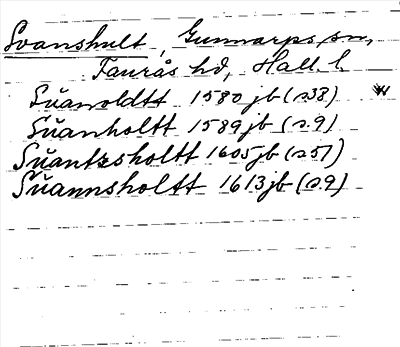 Svanshult, Gunnarps sn,
Faurås hd, Hall. l.
Sŭanoldtt 1580 jb (s38)
Sŭanholtt 1589 jb (s.9)
Sŭantzsholtt 1605 jb (s51)
Sŭannsholtt 1613 jb (s.9)